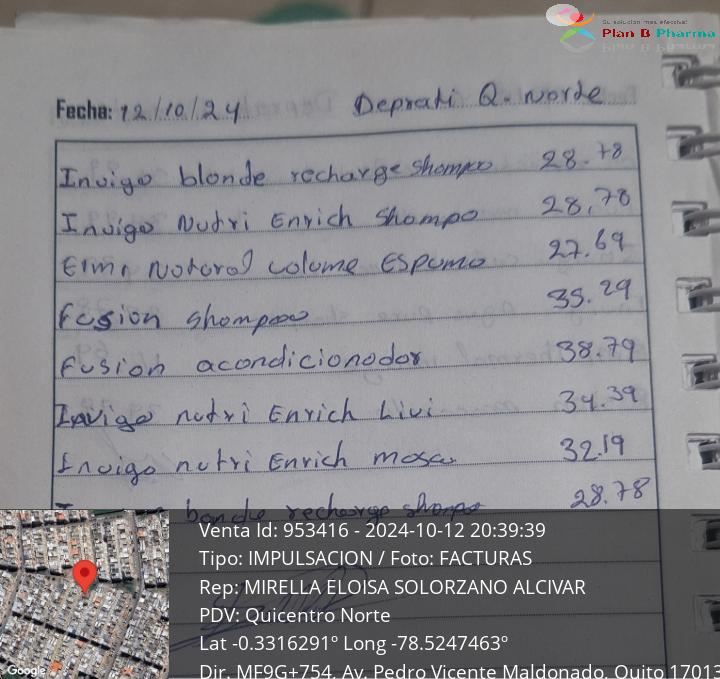 Su solucion mas efectiva!
Plan B Pharma
Fecha: 12/10/24 Deprati Q. Norte
Invigo blonde recharge shampo 28.78
Invigo Nutri Enrich Shampo 28,78
Eimi Natural volume Espuma 27.69
Fusion shampoo 35.29
Fusion acondicionador 38.79
Invigo nutri Enrich Livi 34.39
Invigo nutri Enrich masca 32.19
recharge shampo 28.78
Venta Id: 953416 - 2024-10-12 20:39:39
Tipo: IMPULSACION / Foto: FACTURAS
Rep: MIRELLA ELOISA SOLORZANO ALCIVAR
PDV: Quicentro Norte
Lat -0.3316291º Long -78.5247463º
Dir. MF9G+754, Av. Pedro Vicente Maldonado, Quito 17013
Google